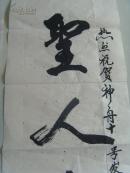 热烈祝贺神舟十号发
聖人